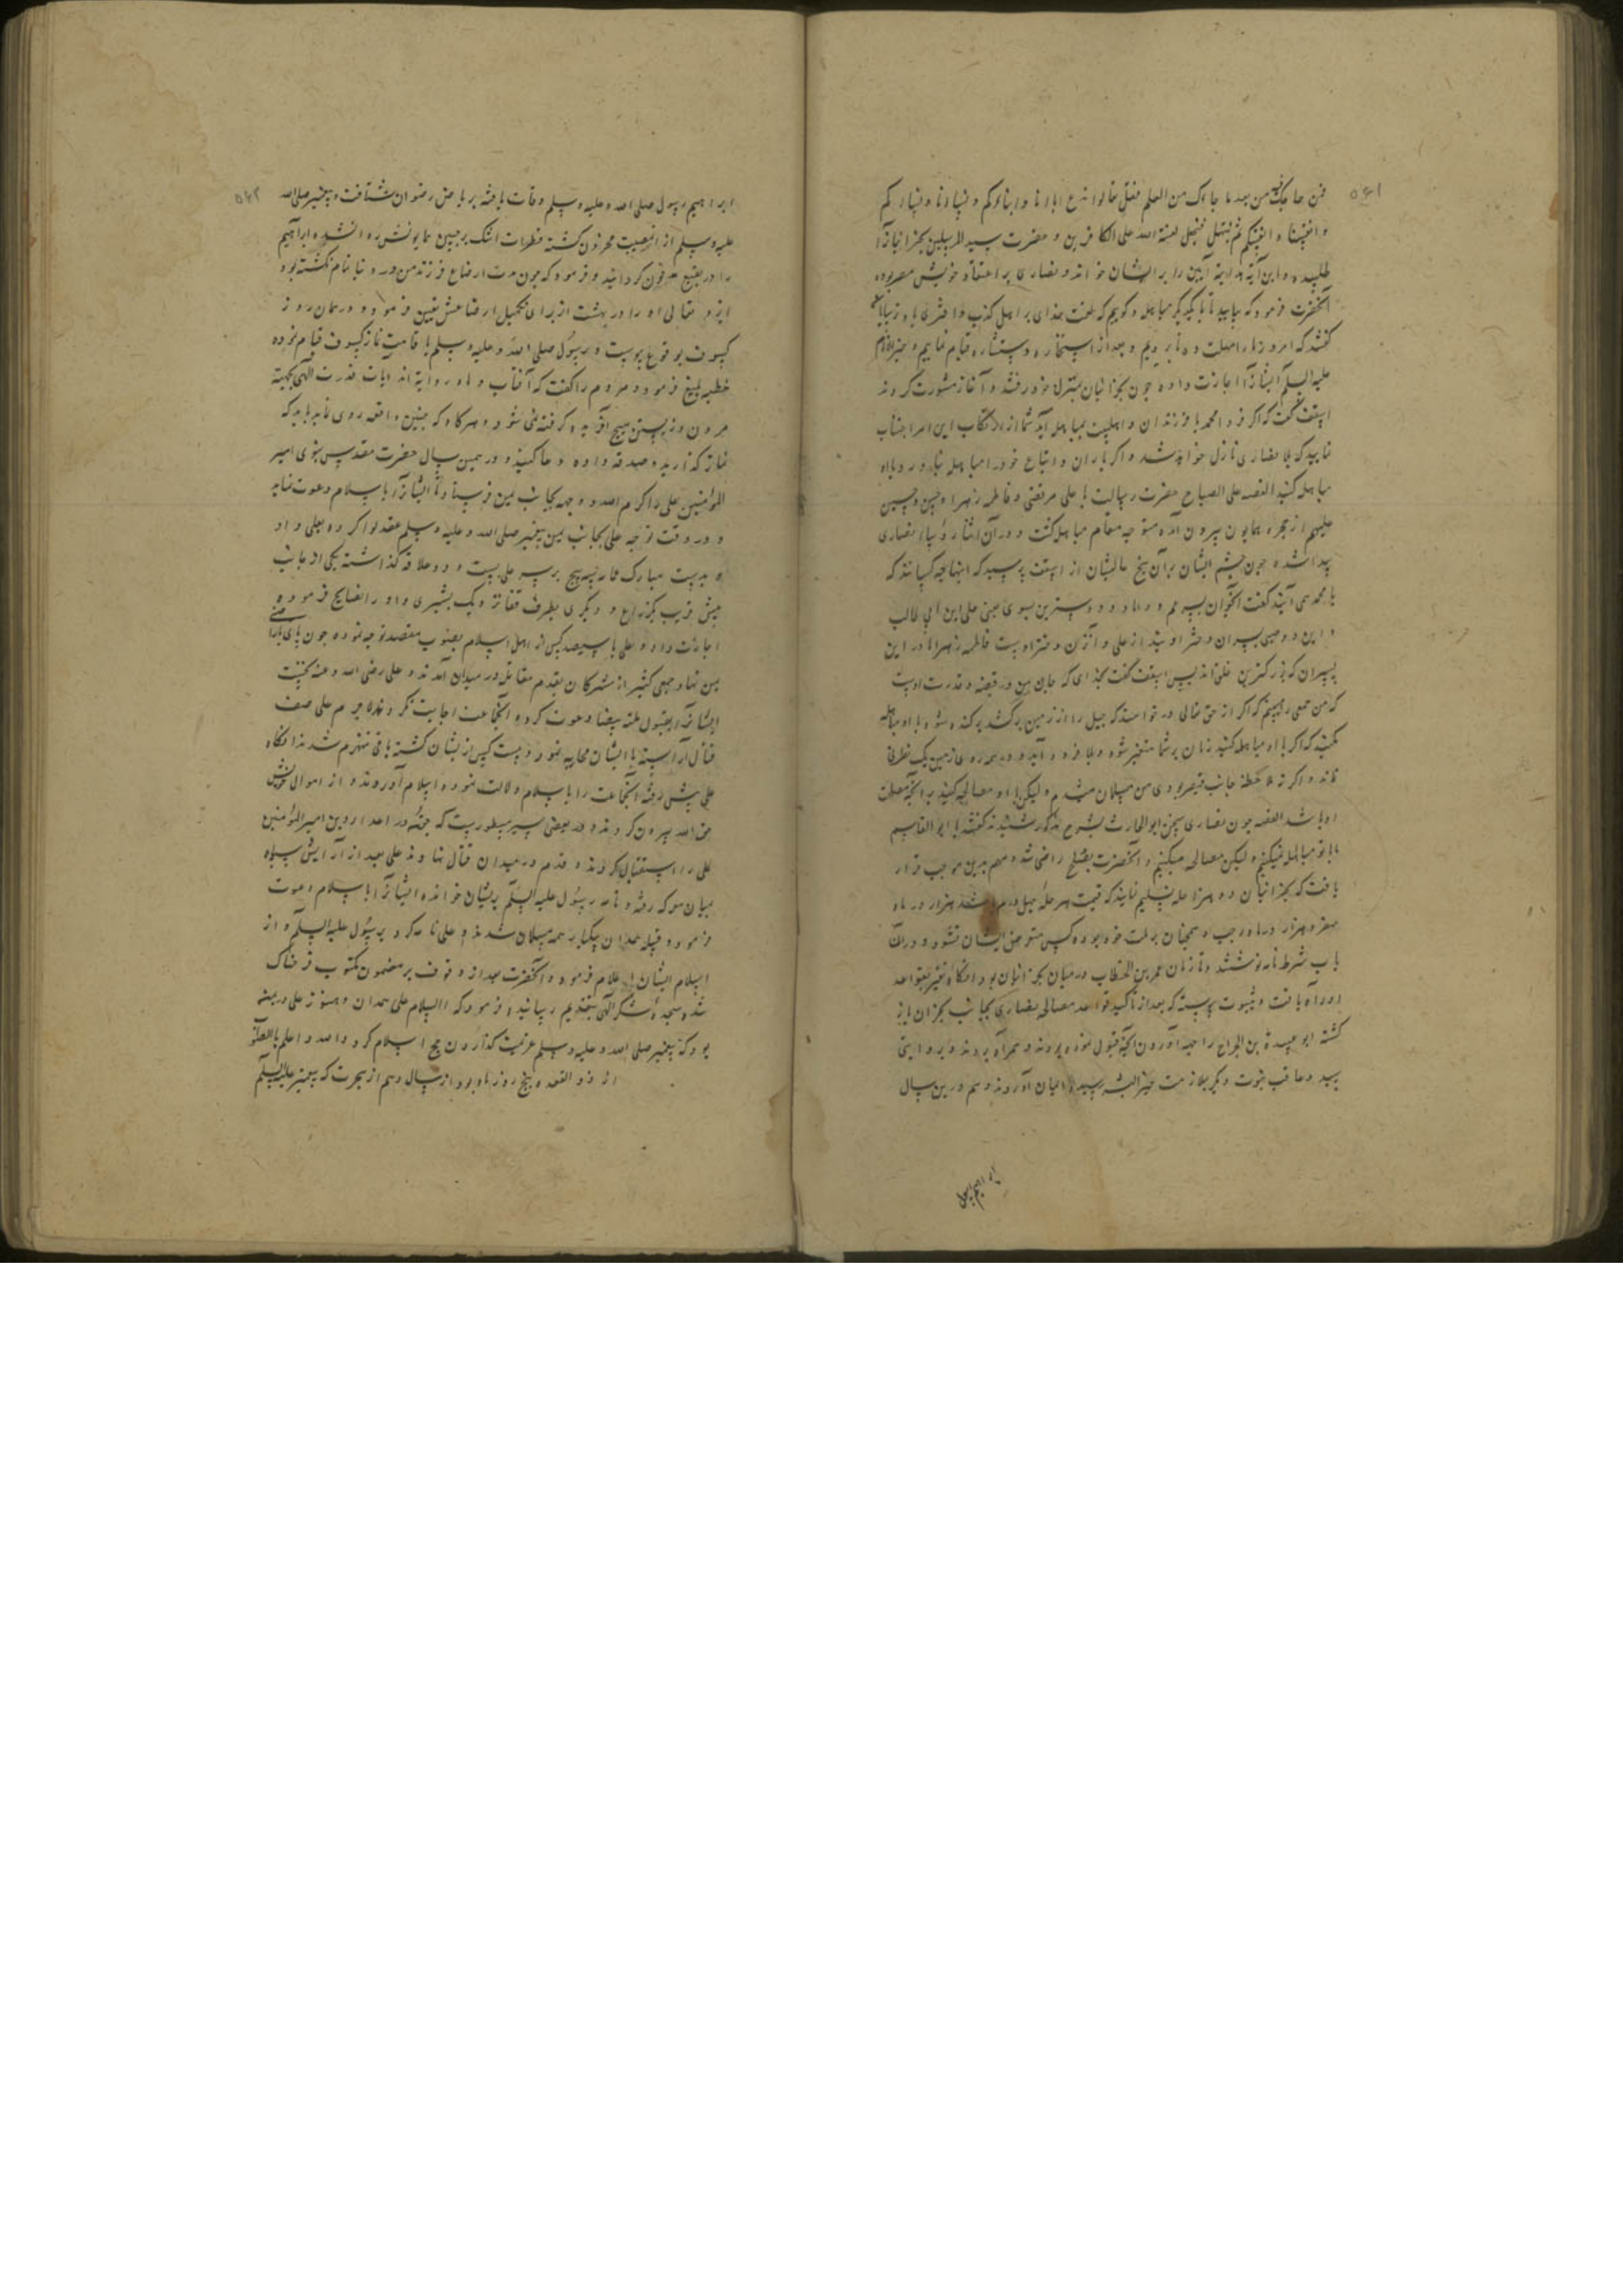 ۵۶۱
فمن حاجک فیه من بعد ما جاءک من العلم فقل تعالوا ندع ابنانا و ابناوکم و نساونا و نساوکم
و انفسنا و انفسکم ثم نبتهل فنجعل لعنة الله علی الکاذبین و حضرت سید المرسلین نجرانیانرا
طلبیده و این آیه هدایة آیین را بر ایشان خواند و نصاری بر اعتقاد خویش مصر بوده
آنحضرت فرمود که بیایید تا با یکدیگر مباهله و کوییم که لعنت خدای بر اهل کذب و افتری باد ترسایان
کفتند که امروز ما را مهلت ده تا برویم و بعد از استخاره و استشاره قیام نماییم و خیر الانام
علیه السلم ایشانرا اجازت داده چون نجرانیان بمنزل خود رفتند و آغاز مشورت کردند
اسقف کفت که اکر فردا محمد با فرزندان و اهلبیت بمباهله آید شما از ارتکاب این امر اجتناب
نمایید که بلا بنصاری نازل خواهد شد و اکر یاران و اتباع خود را مباهله بیاورد با او
مباهله کنید القصه علی الصباح حضرت رسالت با علی مرتضی و فاطمه زهرا و حسن و حسین
علیهم از حجره همایون بیرون آمده متوجه مقام مباهله کشت و در آن اثنا رؤساء نصاری
پیدا شده چون چشم ایشان بر آن پنج عالیشان از اسقف پرسید که اینها چه کسانند که
با محمد می آیند کفت آنجوان پسر عم و داماد و دوسترین بسوی یعنی علی ابن ابی طالب
و این دو صبی پسران دختر او بند از علی و آن زن دختر اوست فاطمه زهرا و در این
پسران که بزرکترین خلق اند پس اسقف کفت بخدای که جان من در قبضه قدرت اوست
که من جمعی را میبینم که اکر از حق تعالی درخواهند که جبل را از زمین برکند برکنده شود با او مباهله
نکنید که اکر با او مباهله کنید زمان بر شما متغیر شود و بلا فرود آید و در همه روی زمین یک نصرانی
نماند و اکر نه ملاحظه جانب قیصر بودی من مسلمان میشدم ولیکن با او مصالحه کنید بر آنچه مصلحت
او باشد القصه چون نصاری سخن ابو الحارث بشرح مذکور شنیدند کفتند یا ابو القاسم
ما با تو مباهله نمیکنیم ولیکن مصالحه میکنیم و آنحضرت بصلح راضی شده مهم برین موجب قرار
یافت که نجرانیان دو هزار حله تسلیم نمایند که قیمت هر حله چهل درم باشد هزار در ماه
صفر و هزار در ماه رجب و همچنان بر ملت خود بوده کسی متعرض ایشان نشود و در آن
باب شرط نامه نوشتند و تا زمان عمر بن الخطاب در میان نجرانیان بود آنکاه تغیر بقواعد
او راه یافت و بثبوت پیوسته که بعد از تاکید قواعد مصالحه نصاری بجانب نجران باز
کشته ابو عبیدة بن الجراح را جهة آوردن آنچه قبول نموده بودند همراه بردند و بروایتی
سید و عاقب نوبت دیکر بملازمت خیر البشر رسیده ایمان آوردند و هم درین سال
ابراهیم بن رسول
۵۶۲
ابراهیم رسول صلی الله علیه وسلم وفات یافته بریاض رضوان شتافت و پیغمبر صلی الله
علیه وسلم از این مصیبت محزون کشته قطرات اشک بر جبین همایونش روان شده ابراهیم
را در بقیع مدفون کردانید و فرمود که چون مدت ارضاع فرزند من در دنیا تمام نکشته بود
ایزد تعالی او را در بهشت از برای تکمیل ارضاعش تعیین فرمود و در همان روز
کسوف بوقوع پیوست و رسول صلی الله علیه وسلم باقامت نماز کسوف قیام نموده
خطبه بلیغ فرمود و مردم را کفت که آفتاب و ماه دو آیة اند از آیات قدرت الهی بجهة
مردن و زیستن هیچ آفریده کرفته نمی شود و هرکاه که چنین واقعه روی نماید باید که
نماز کذارید و صدقه داده دعا کنید و در همین سال حضرت مقدس نبوی امیر
المؤمنین علی را کرم الله وجهه بجانب یمن فرستاد تا ایشانرا باسلام دعوت نماید
و در وقت توجه علی بجانب یمن پیغمبر صلی الله علیه وسلم عقد لوا کرده بعلی داد
و بدست مبارک عمامه سه پیچ بر سر علی بست و دو علاقه کذاشته یکی از جانب
پیش قریب بکزراع و دیکری بطرف قفا نزدیک بشبری و او را نصایح فرموده
اجازت داد و علی با سیصد کس از اهل اسلام بصوب مقصد توجه نموده چون پای در
یمن نهاد جمعی کثیر از مشرکان بقدم مقابله در میدان آمدند و علی رضی الله عنه نخست
ایشانرا بقبول ملة بیضا دعوت کرده آنجماعت اجابت نکردند لاجرم علی صف
قتال آراسته با ایشان محاربه نمود و بیست کس از ایشان کشته باقی منهزم شدند آنکاه
علی پیش رفته آنجماعت را باسلام دلالت نموده اسلام آوردند و از اموال خویش
حق الله بیرون کردند و در بعضی سیر مسطورست که جوقی از اعداء دین امیر المؤمنین
علی را استقبال کردند و قدم در میدان قتال نهادند علی بعد از آرایش سپاه
میان معرکه رفته و نامه رسول علیه السلم بر ایشان خوانده ایشانرا باسلام دعوت
فرمود و قبیله همدان یکبار همه مسلمان شدند و علی نامه کرد برسول علیه السلم و از
اسلام ایشان اعلام فرموده و آنحضرت بعد از وقوف بر مضمون مکتوب فرحناک
شده سجدۀ شکر الهی بتقدیم رسانید و فرمود که السلام علی همدان و هنوز علی در یمن
بود که پیغمبر صلی الله علیه وسلم عزیمت کذاردن حج اسلام کرد والله اعلم بالصواب
از ذو القعده پنج روز مانده بود از سال دهم از هجرت که پیغمبر علیه السلم